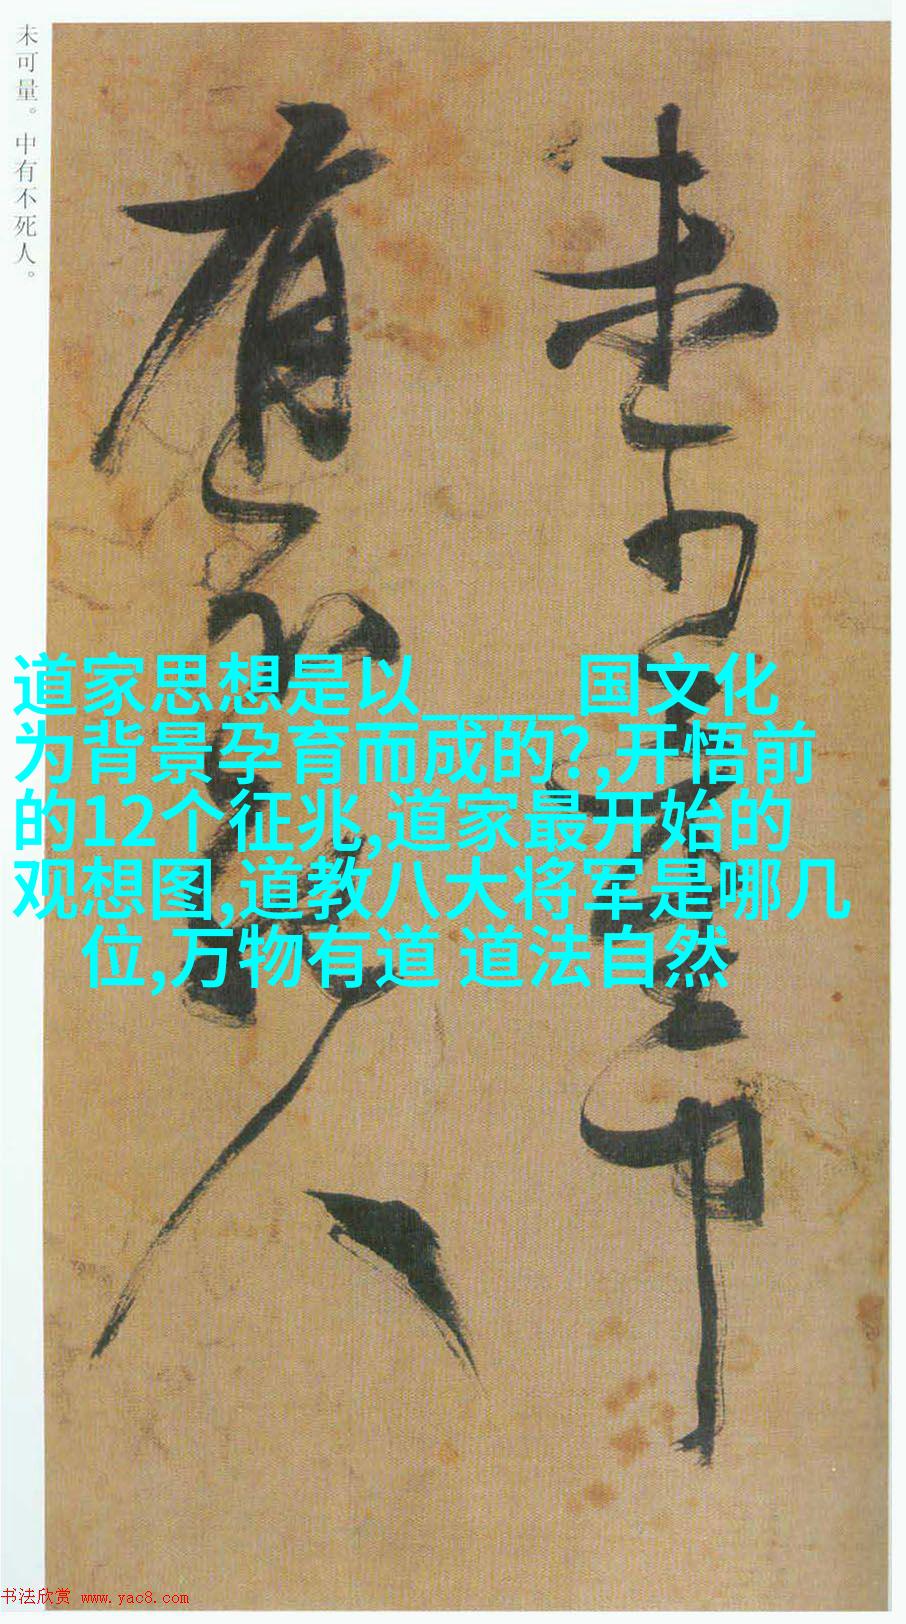 未可量。中有不死人。
未可量中
有不死人
道家思想是以____国文化
为背景孕育而成的?,开悟前
的12个征兆,道家最开始的
观想图,道教八大将军是哪几
位,万物有道 道法自然
书法欣赏 www.yac8.com